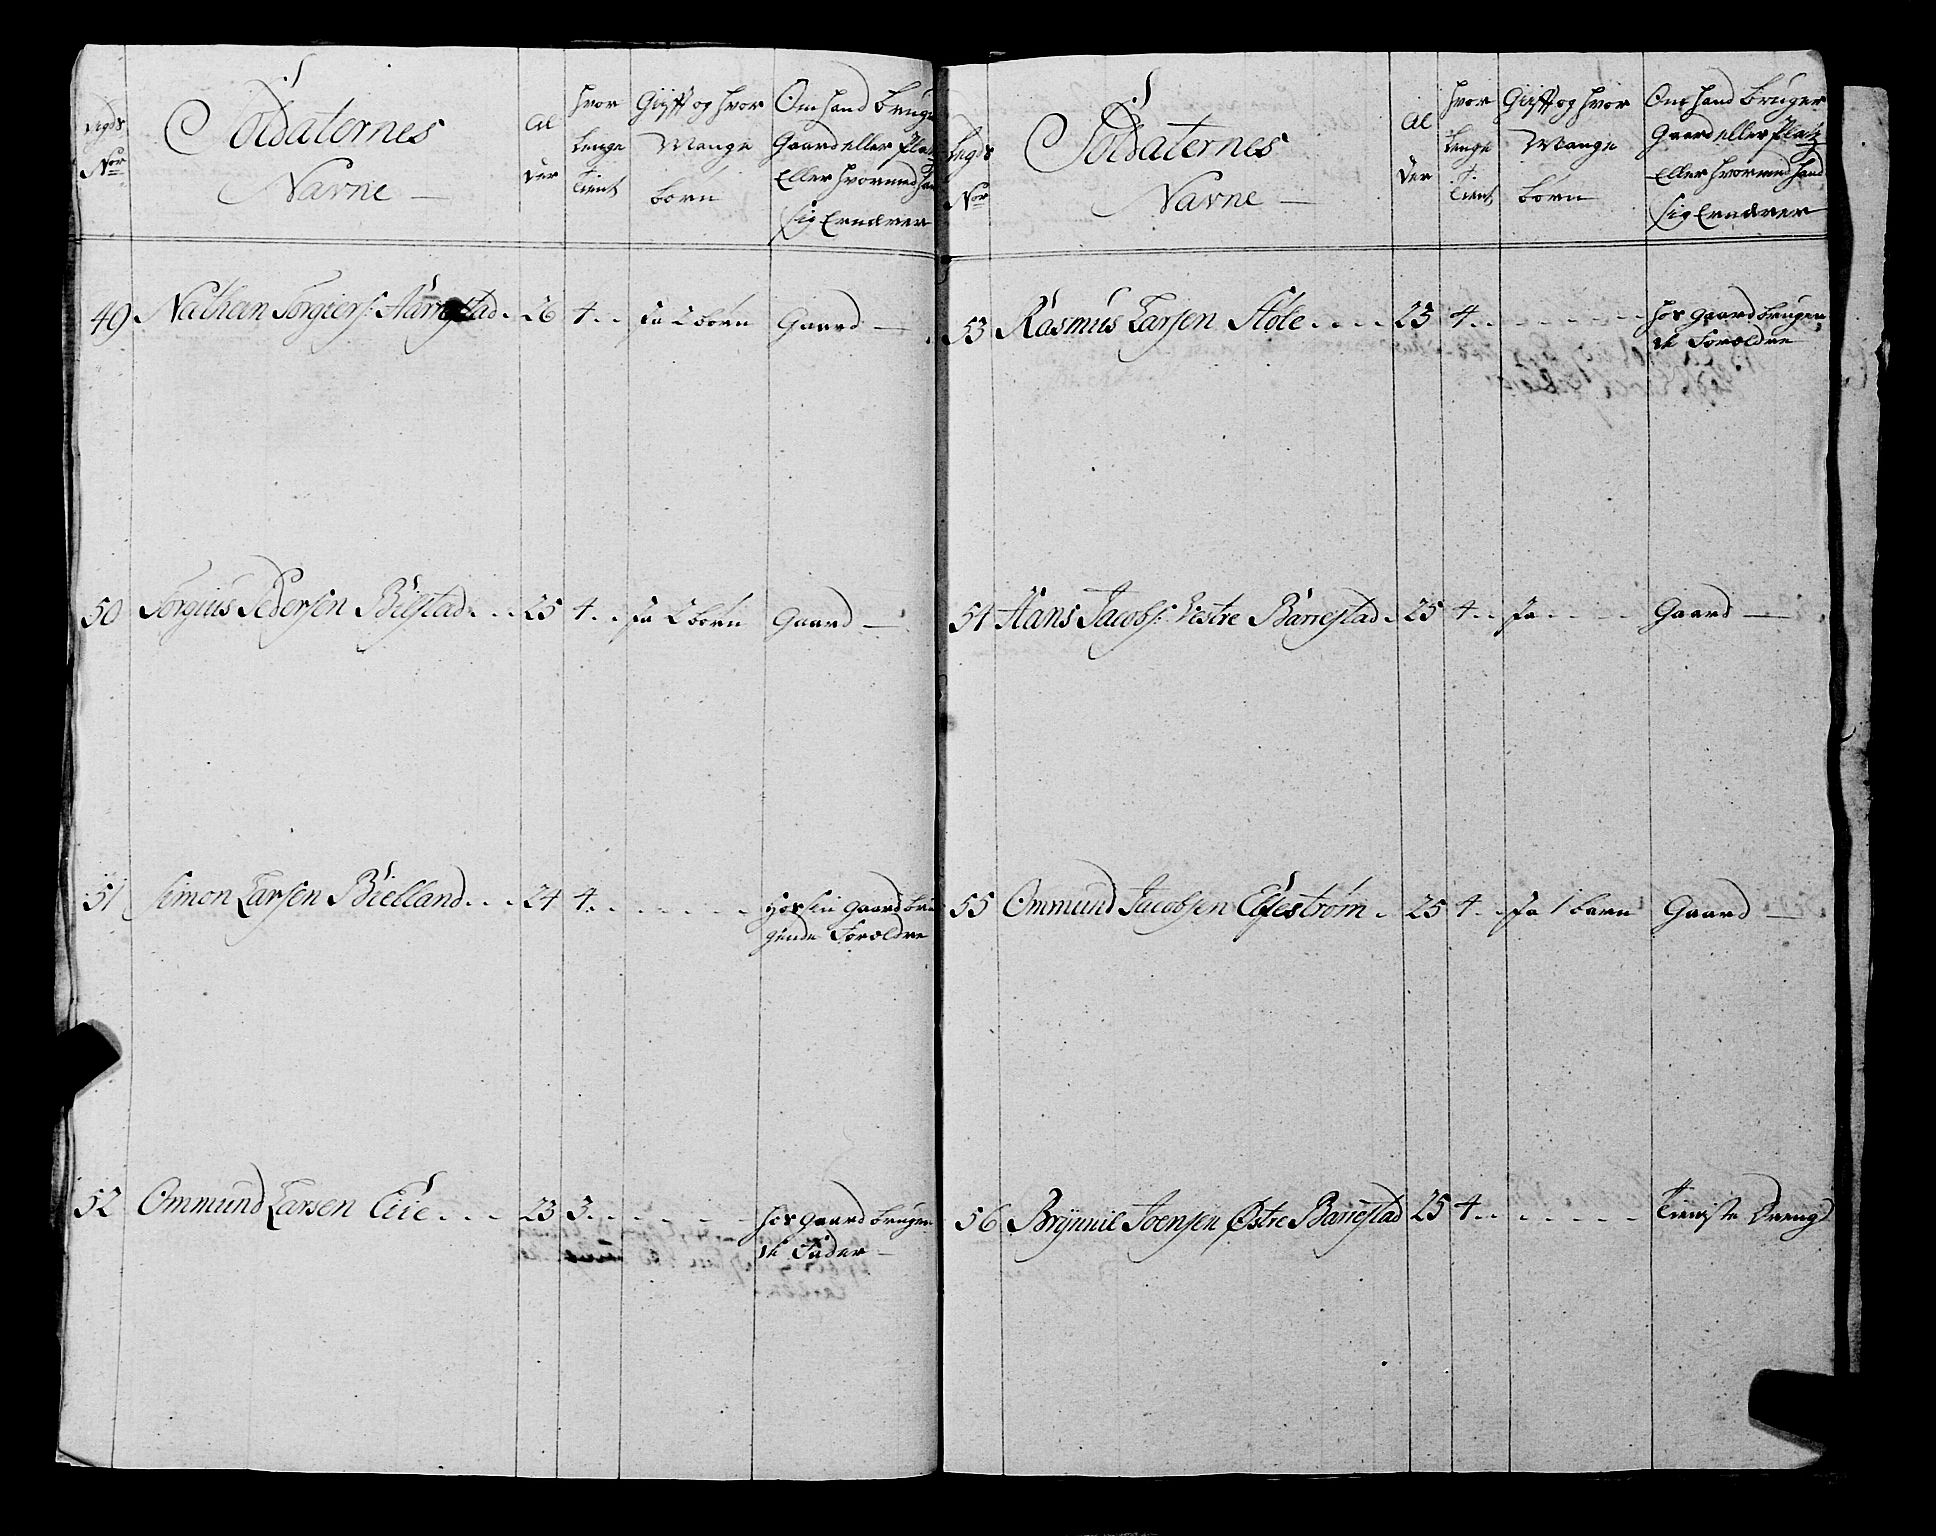 Legds Nor
Soldaternes Navne
Al der
Hvor Lenge Tient
Gift og Hvor Mange børn
Om Hand Bruger Gaard eller Platz Eller Hvormed Hand sig Ernærer
49 Nathan Torgiers: Aarrestad 26 4 Ja 2 børn Gaard
50 Torgius Pedersen Bilstad 25 4 Ja 2 børn Gaard
51 Simon Larsen Bielland 24 4 Hos sin gaard bru
gende Forældre
52 Ommund Larsen Eie 23 3 Hos gaard brugen
de Fader
Legds Nor
Soldaternes Navne
Al der
Hvor Lenge Tient
Gift og Hvor Mange børn
Om Hand Bruger Gaard eller Platz Eller Hvormed Hand sig Ernærer
53 Rasmus Larsen Stole 25 4 Hos gaard brugen
de Forældre
54 Hans Jacobs: Vestre Barrestad 25 4 Ja Gaard
55 Ommund Jacobsen Elfestrøm 25 4 Ja 1 barn Gaard
56 Brynnil Joensen Østre Barrestad 25 4 Tieniste Dreng